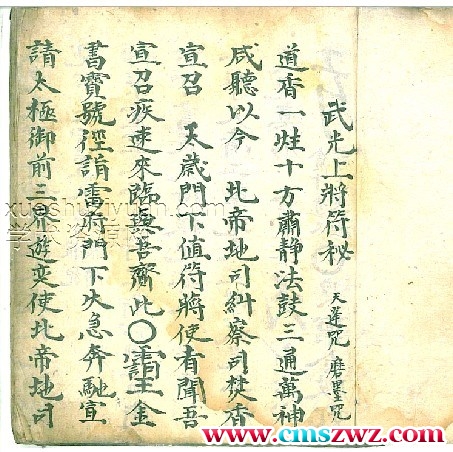 武光上將符秘 天蓬咒 磨墨咒
道香一炷十方肅静法鼓三通萬神
咸聽以今 北帝地司糾察司焚香
宣召 太歲門下值符將使者聞吾
宣召疾速來臨與吾齎此〇 金
書寶號徑詣雷府門下火急奔馳宣
請太極御前三界遊奕使北帝地司
www.cmszwz.com